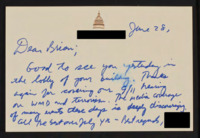 June 28,
Dear Brian,
Good to see you yesterday in
the lobby of your building. Thanks
again for covering our 9/11 hearing
on WMD and terrorism. The media coverage
of many events these days is deeply discouraging
all the serious July 4th - Best regards,